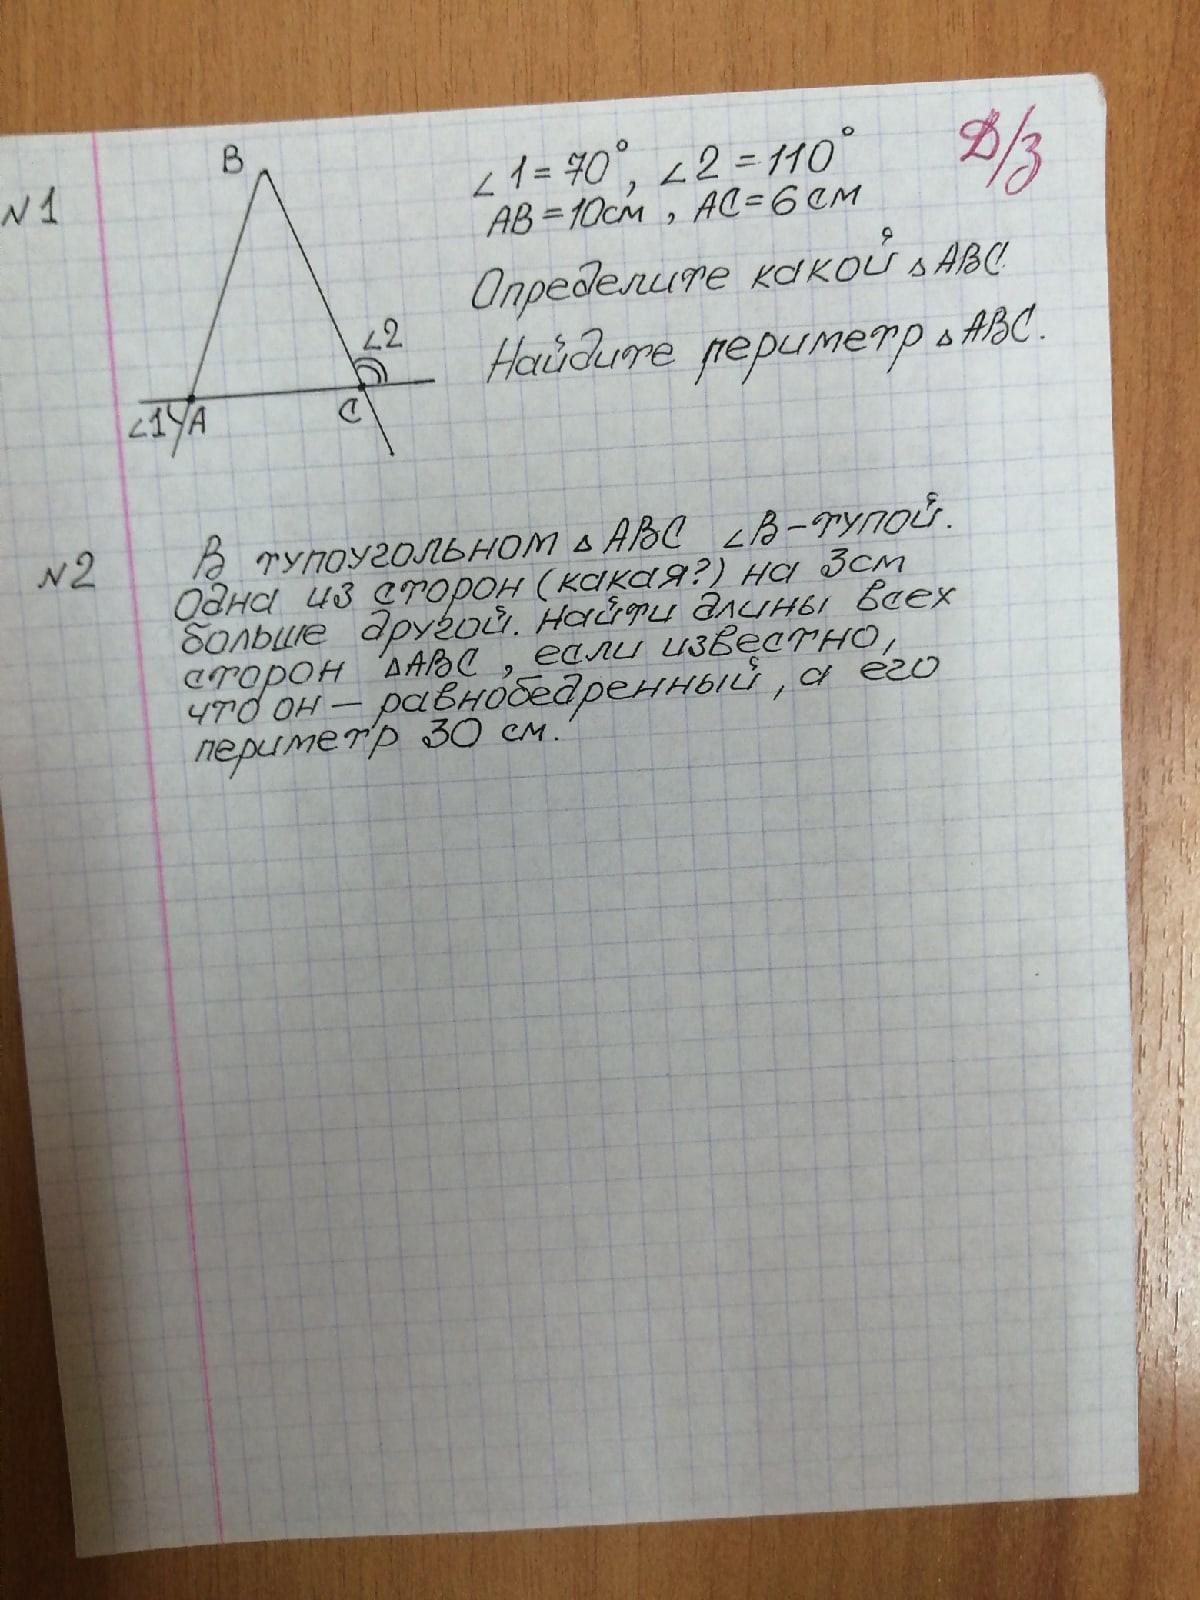 Д/з
N1
B
∠1 = 70°, ∠2 = 110°
AB = 10см, AC = 6см
Определите какой △ABC.
Найдите периметр △ABC.
∠2
∠1 A
C
N2
В тупоугольном △ABC ∠B – тупой.
Одна из сторон (какая?) на 3см
больше другой. Найти длины всех
сторон △ABC, если известно,
что он – равнобедренный, а его
периметр 30 см.